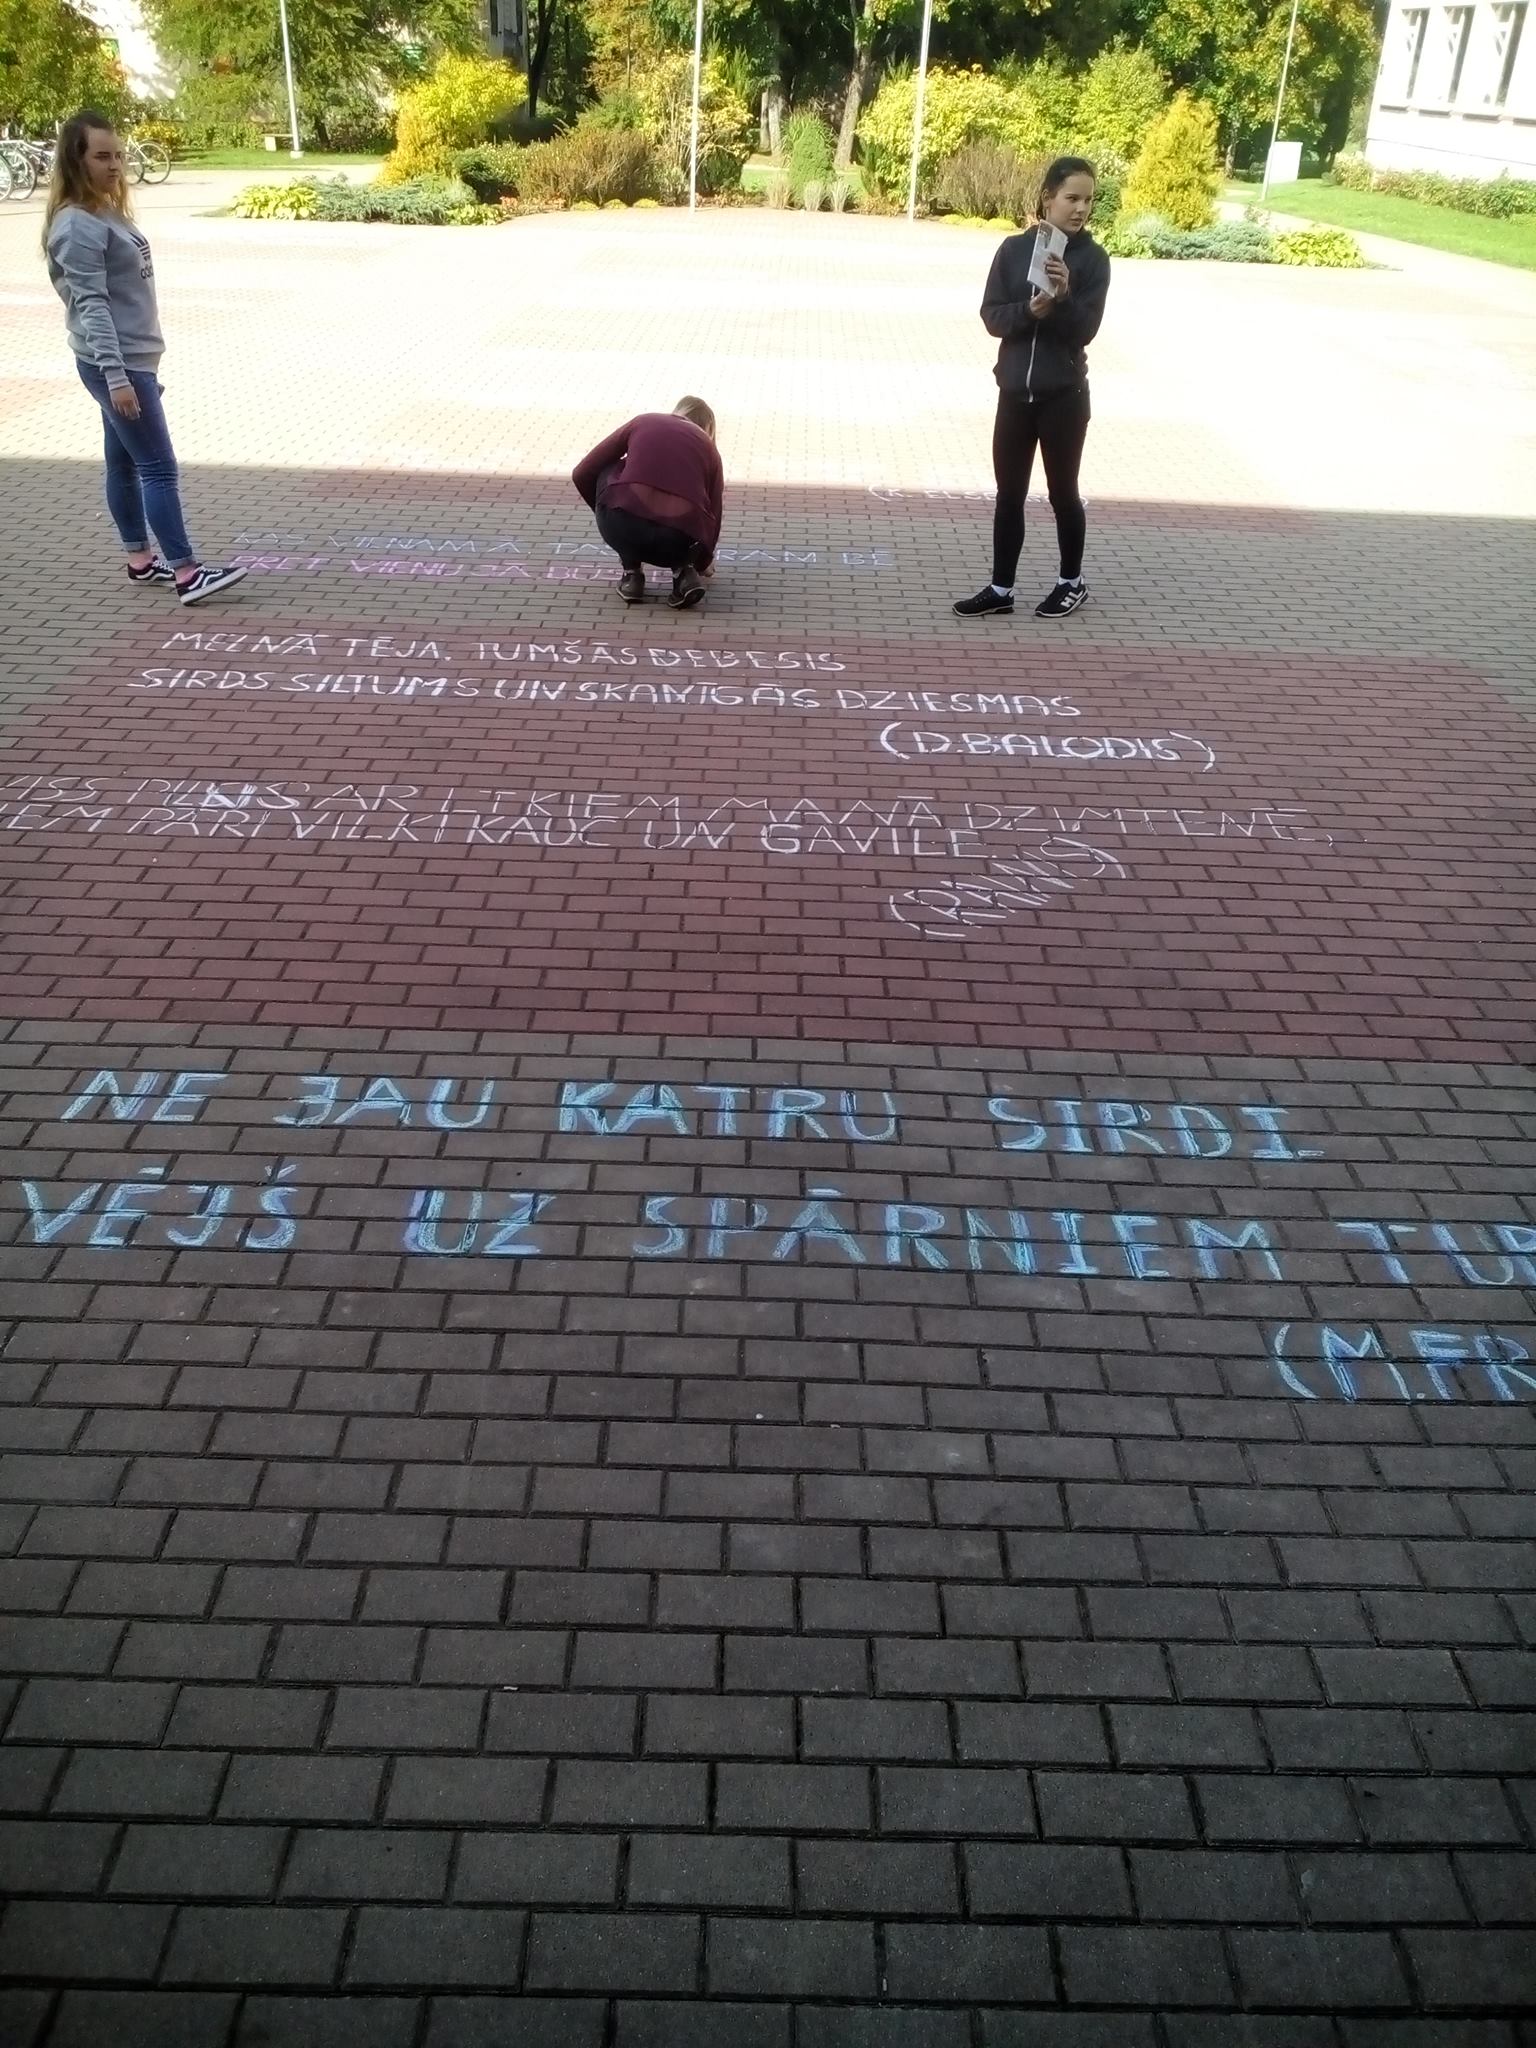 (K.
KAS VIENAM Ā BE
PRET VIENU JĀ
MELNĀ TĒJA. TUMŠĀS DEBESIS
SIRDS SILTUMS UN SKANĪGĀS DZIESMAS
(D. BALODIS)
VISS PILNS AR LĪĶIEM MANĀ DZIMTENĒ,
IEM PĀRI VILKI KAUC UN GAVILĒ.
(RAINIS)
NE JAU KATRU SIRDI
VĒJŠ UZ SPĀRNIEM TUR
(M.FR
HL